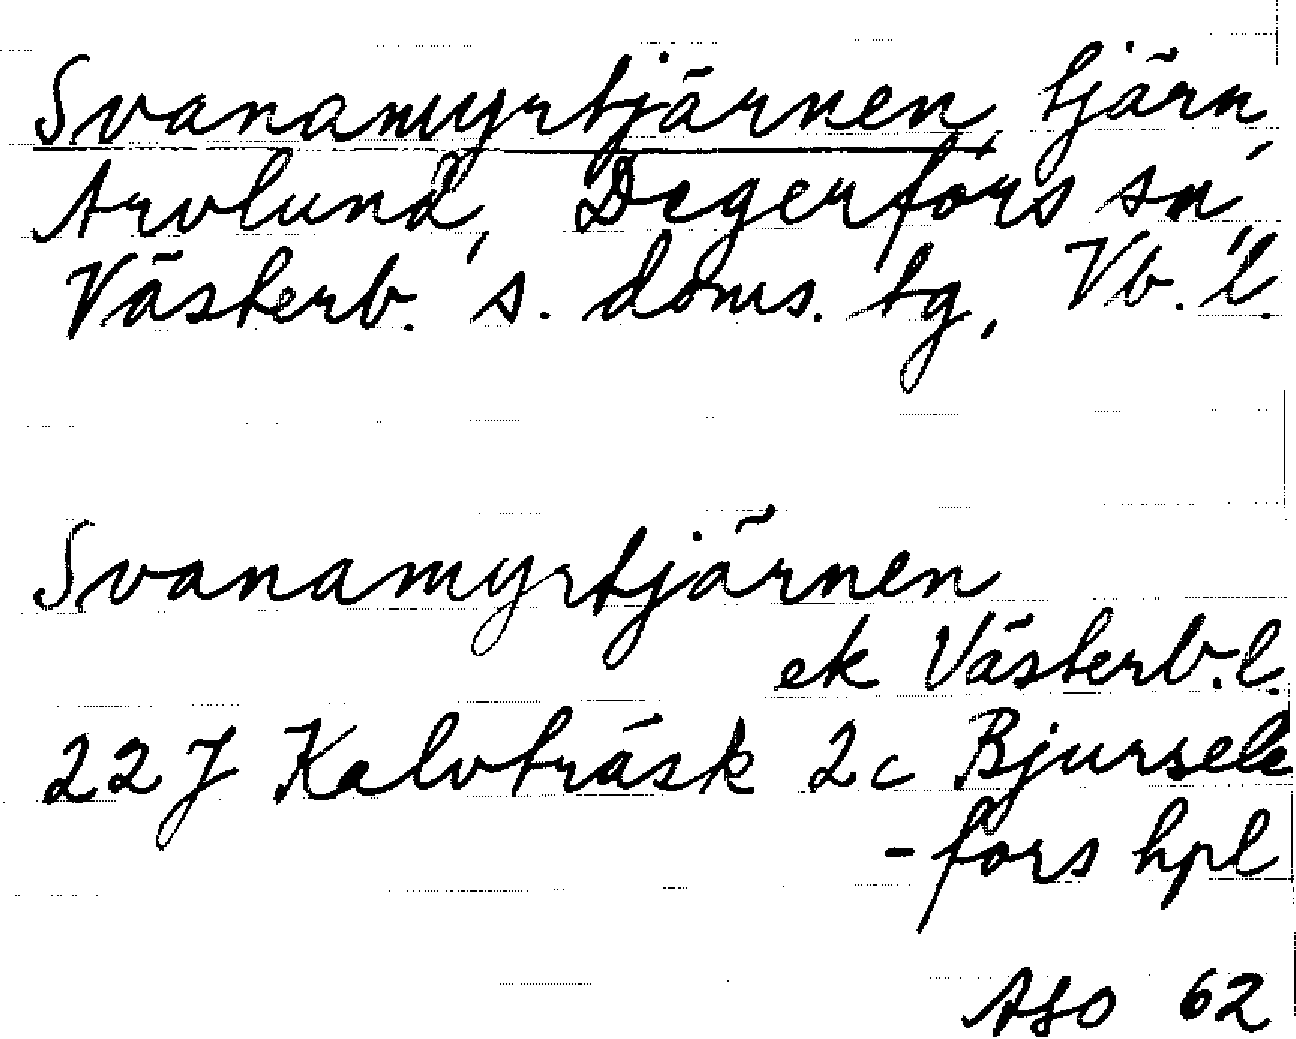 Svanamyrtjärnen, tjärn,
Arvlund, Degerfors sn,
Västerb. s. doms. tg, Vb. l.
Svanamyrtjärnen
ek Västerb. l.
22 J Kalvträsk 2c Bjursele
- fors hpl
ASO 62